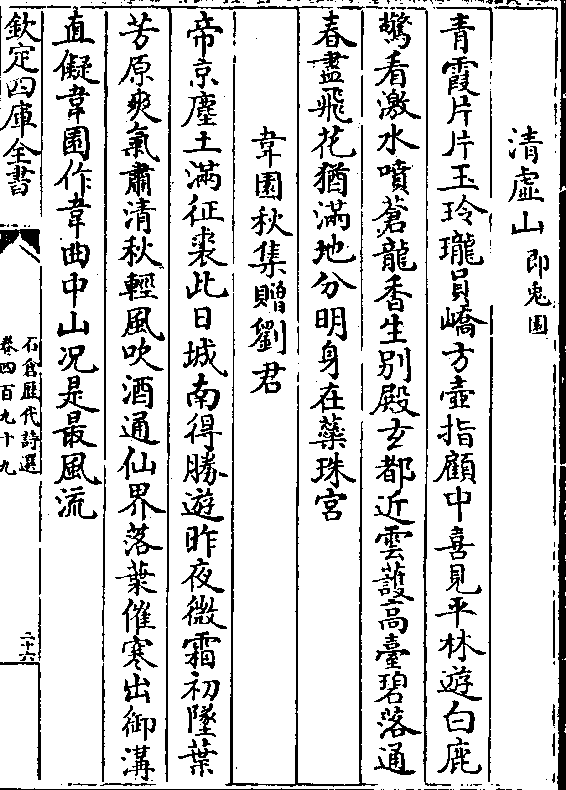 清虛山即兎園
青霞片片玉玲瓏員嶠方壺指顧中喜見平林遊白鹿
驚看激水噴蒼龍香生別殿玄都近雲護高臺碧落通
春盡飛花猶滿地分明身在蘂珠宮
韋園秋集贈劉君
帝京塵土滿征裘此日城南得勝遊昨夜微霜初墜葉
芳原爽氣肅清秋輕風吹酒通仙界落葉催寒出御溝
直儗韋園作韋曲中山况是最風流
欽定四庫全書
石倉歷代詩選
卷四百九十九
二十六